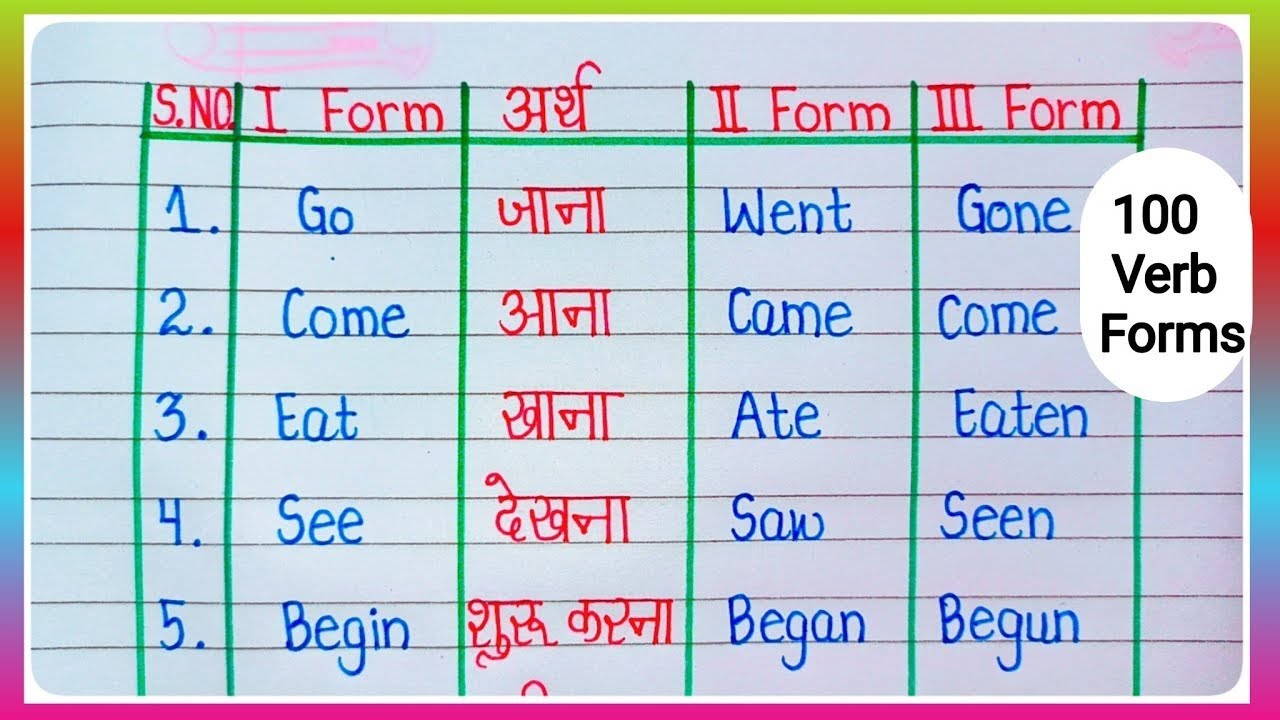 S.NO. I Form अर्थ II Form III Form
1. Go जाना Went Gone
2. Come आना Came Come
3. Eat खाना Ate Eaten
4. See देखना Saw Seen
5. Begin शुरू करना Began Begun
100
Verb
Forms